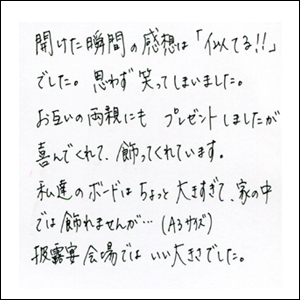 開けた瞬間の感想は「似てる!!」
でした。思わず笑ってしまいました。
お互いの両親にも プレゼントしましたが
喜んでくれて、飾ってくれています。
私達のボードはちょっと大きすぎて、家の中
では飾れませんが…(A3サイズ)
披露宴会場では いい大きさでした。